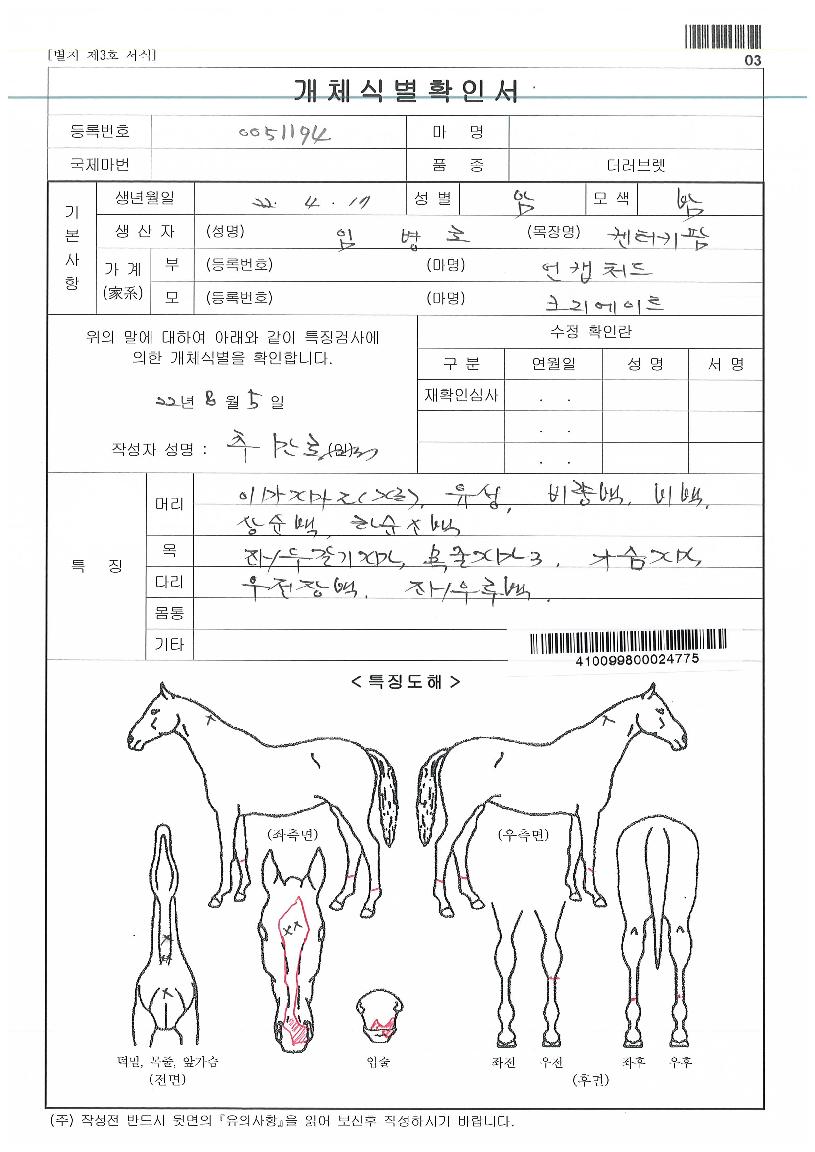 [별지 제3호 서식]
03
개체식별확인서
등록번호 0051194 마 명
국제마번 품 종 더러브렛
기본사항
생년월일 22. 4. 17 성 별 암 모 색 밤
생 산 자 (성명) 임 병 로 (목장명) 켄터키팜
가 계 (家系) 부 (등록번호) (마명) 언캡처드
모 (등록번호) (마명) 크리에이트
위의 말에 대하여 아래와 같이 특징검사에
의한 개체식별을 확인합니다.
22년 8월 5일
작성자 성명 :
수정 확인란
구 분 연월일 성 명 서 명
재확인심사 . .
. .
. .
특 징
머리 유성, 비량백, 비백,
상순백,
목
다리 우전장백.
몸통
기타
410099800024775
< 특징도해 >
(좌측면) (우측면)
턱밑, 목줄, 앞가슴 입술 좌전 우전 좌후 우후
(전면) (후면)
(주) 작성전 반드시 뒷면의 『유의사항』을 읽어 보신후 작성하시기 바랍니다.